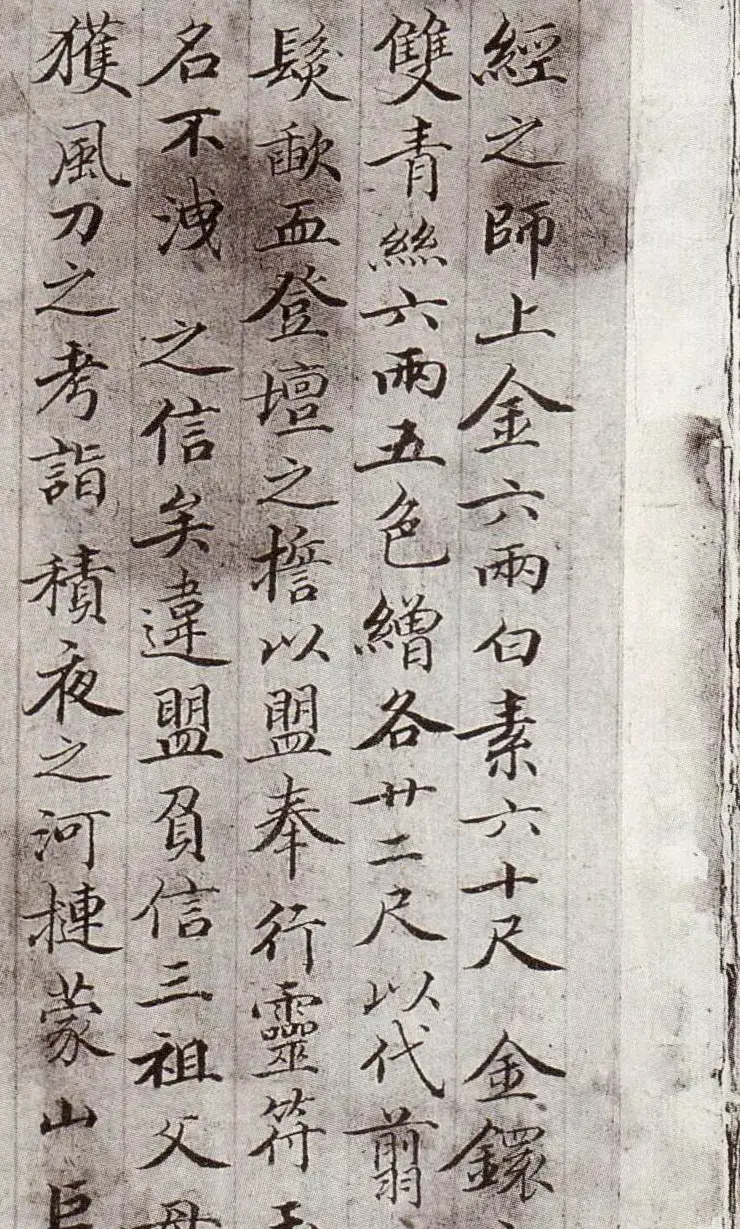 經之師上金六兩白素六十尺金鐶
雙青絲六兩五色繒各廿二尺以代翦
髮歃血登壇之擔以盟奉行靈符玉
名不洩之信矣違盟負信三祖父母
獲風刀之考詣積夜之河摙蒙山巨